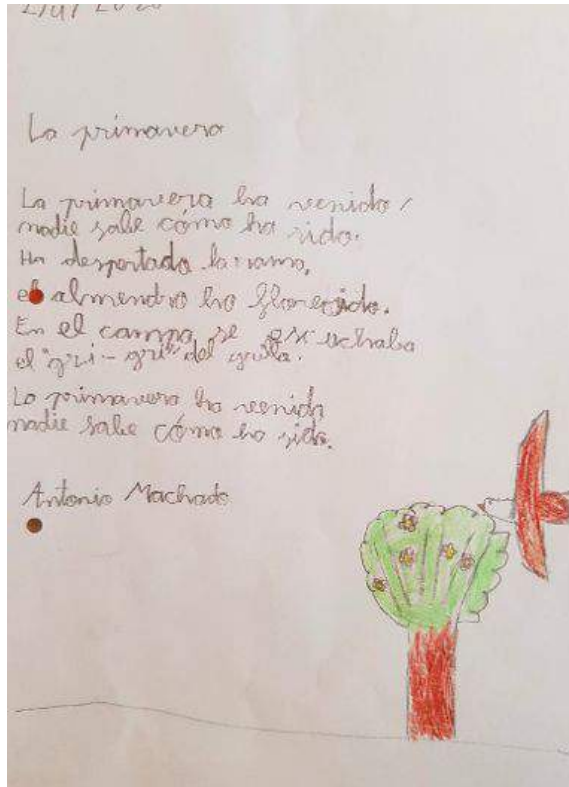 La primavera
La primavera ha venido /
nadie sabe cómo ha sido.
Ha despertado la rama,
el almendro ha florecido.
En el campo se escuchaba
el "gri-gri" del grillo.
La primavera ha venido
nadie sabe cómo ha sido.
Antonio Machado